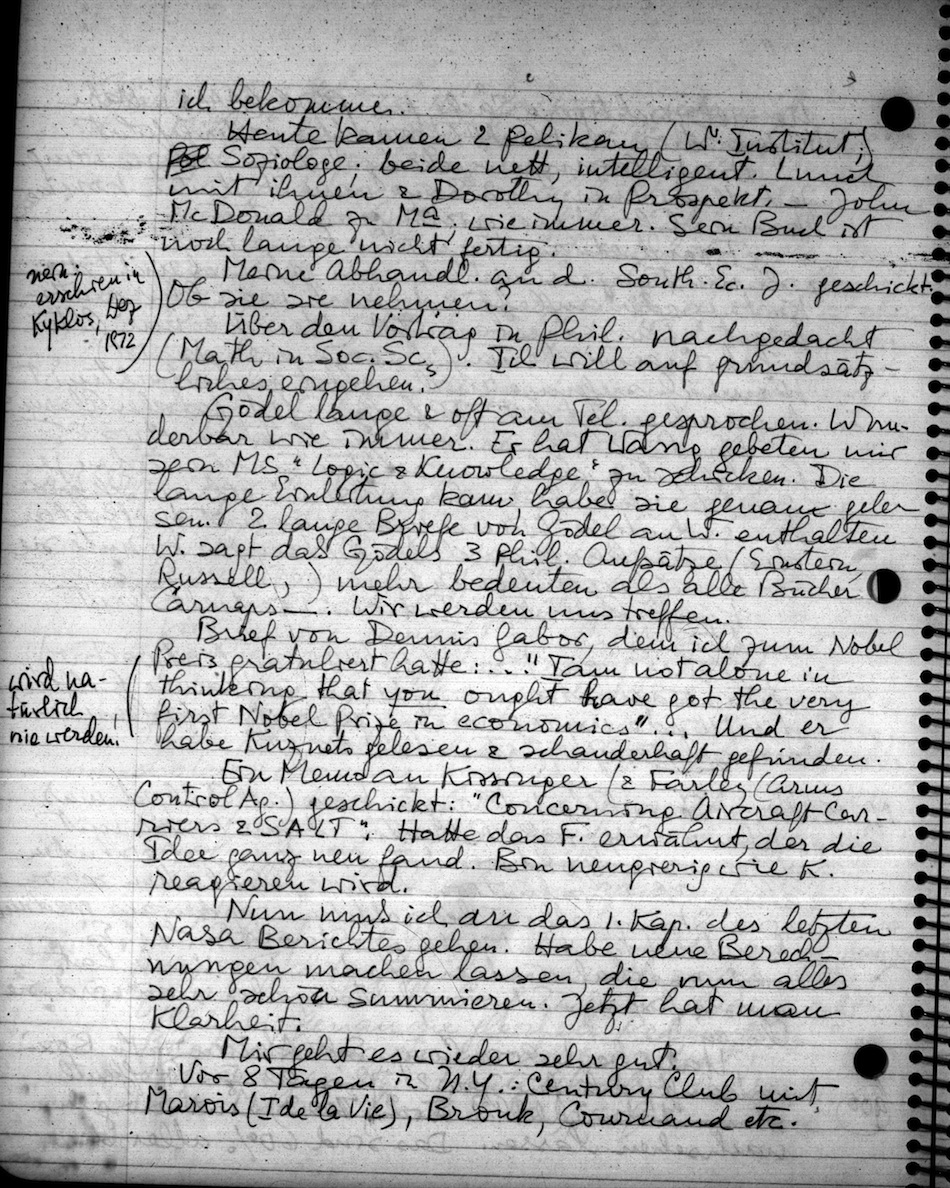 ich bekommen.
Heute kamen 2 Pelikan (W. Institut;)
Soziologe; beide nett, intelligent. Lunch
mit ihnen & Dorothy in Prospekt. – John
McDonald zu Ma. wie immer. Sein Buch ist
noch lange nicht fertig.
Meine Abhandl. an d. South. Ec. J. geschickt.
Ob sie sie nehmen?
nein.
erschien in
Kyklos, Dez
1972
Über den Vortrag in Phil. nachgedacht
(Math in Soc. Sc.s). Ich will auf grundsätz-
liches eingehen.
Gödel lange & oft am Tel. gesprochen. Wun-
derbar wie immer. Er hat Wang gebeten mir
sein MS "Logic & Knowledge" zu schicken. Die
lange Einleitung kam, habe sie genau gele-
sen. 2 lange Briefe von Gödel an W. enthalten
W. sagt das Gödels 3 phil. Aufsätze (Einstein,
Russell, ) mehr bedeuten als alle Bücher
Carnaps –. Wir werden uns treffen.
Brief von Dennis Gabor, dem ich zum Nobel
Preis gratuliert hatte: ... "I am not alone in
thinking that you ought have got the very
first Nobel Prize in economics" ... Und er
habe Kuznets gelesen & schauderhaft gefunden.
wird na-
türlich
nie werden.
Ein Memo an Kissinger (& Farley (Arms
Control Ag.) geschickt: "Concerning Aircraft Car-
riers & SALT". Hatte das F. erwähnt, der die
Idee ganz neu fand. Bin neugierig wie K.
reagieren wird.
Nun muß ich an das 1. Kap. des letzten
Nasa Berichtes gehen. Habe neue Berech-
nungen machen lassen, die nun alles
sehr schön summieren. Jetzt hat man
Klarheit.
Mir geht es wieder sehr gut.
Vor 8 Tagen in N.Y.: Century Club mit
Marois (I de la Vie), Bronk, Cournand etc.